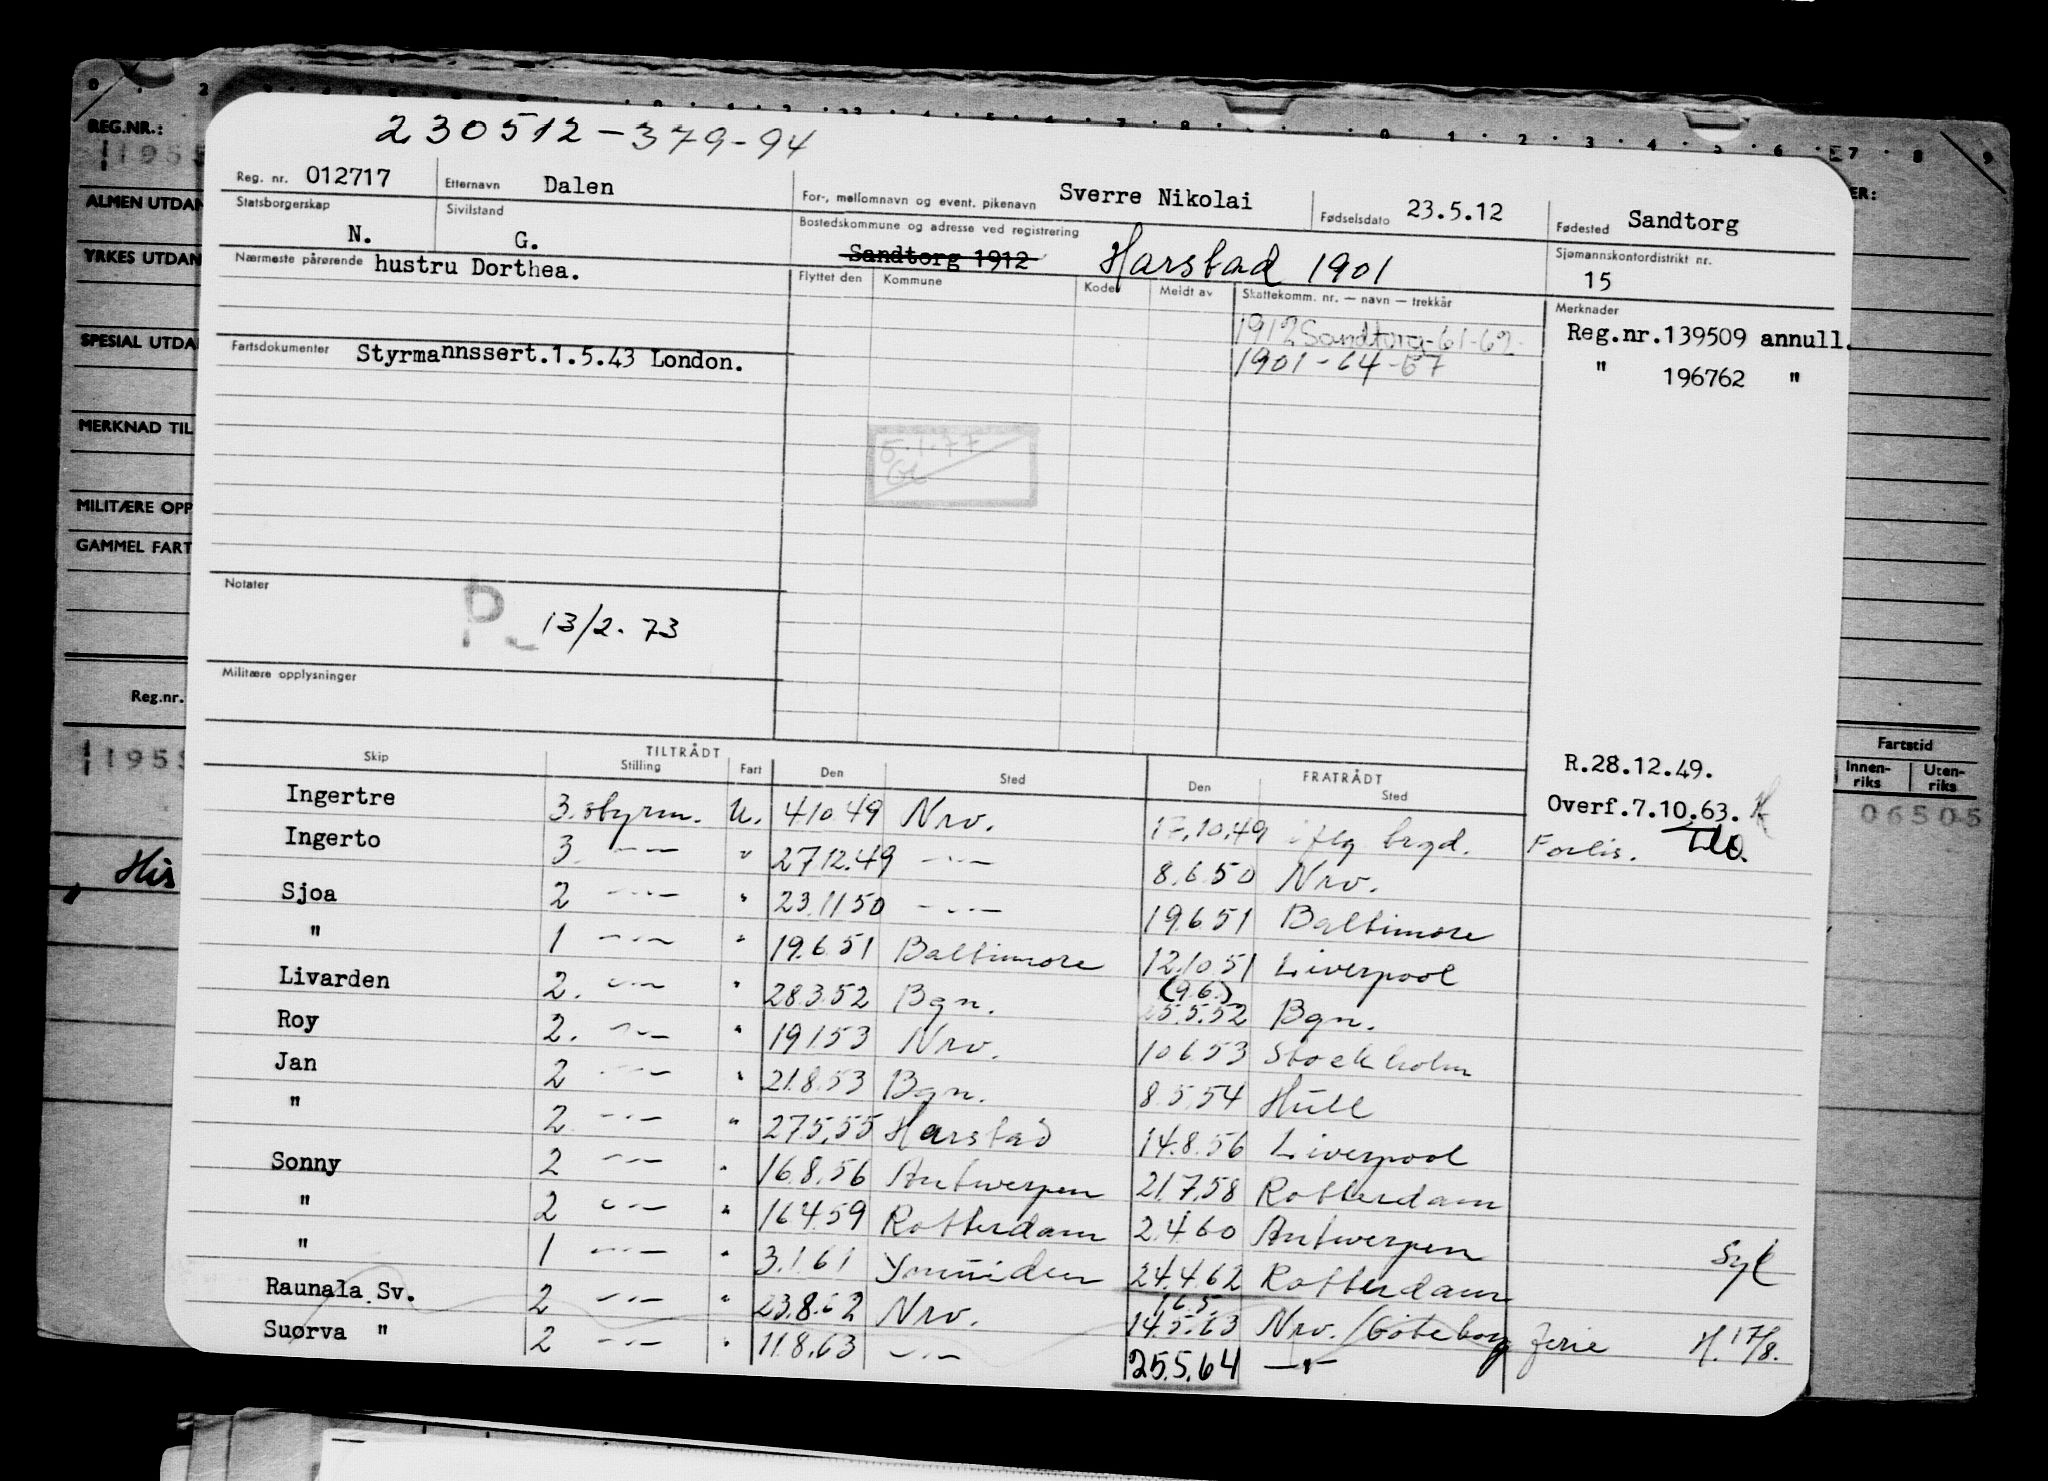 230512-379-94
REG.NR.:
ALMEN UTDAN
YRKES UTDAN
SPESIAL UTDA
MERKNAD TIL
MILITÆRE OPP
GAMMEL FART
Reg.nr.
Reg. nr. 012717 Etternavn Dalen For-, mellomnavn og event. pikenavn Sverre Nikolai Fødselsdato 23.5.12 Fødested Sandtorg
Statsborgerskap N. Sivilstand G. Bostedskommune og adresse ved registrering Sandtorg 1912 Harstad 1901 Sjømannskontordistrikt nr. 15
Nærmeste pårørende hustru Dorthea. Flyttet den Kommune Kode Meldt av Skattekomm. nr. — navn — trekkår Merknader
1912 Sandtorg-61-62- Reg.nr.139509 annull.
Fartsdokumenter Styrmannssert.1.5.43 London. 1901-64-67 " 196762 "
5.1.77
Notater
P 13/2. 73
Militære opplysninger
Skip TILTRÅDT FRATRÅDT R.28.12.49.
Stilling Fart Den Sted Den Sted Overf.7.10.63.
Fartstid
Innen-riks Uten-riks
06505
Ingertre 3. styrm. U. 4.10.49 Nrv. 17.10.49 Forlis.
Ingerto 3 -"- " 27.12.49 -"- 8.6.50 Nrv.
Sjoa 2 -"- " 23.11.50 -"- 19.6.51 Baltimore
" 1 -"- " 19.6.51 Baltimore 12.10.51 Liverpool
Livarden 2. -"- " 28.3.52 Bgn. (9.6.) 5.5.52 Bgn.
Roy 2. -"- " 19.1.53 Nrv. 10.6.53 Stockholm
Jan 2 -"- " 21.8.53 Bgn. 8.5.54 Hull
" 2 -"- " 27.5.55 Harstad 14.8.56 Liverpool
Sonny 2 -"- " 16.8.56 Antwerpen 21.7.58 Rotterdam
" 2 -"- " 16.4.59 Rotterdam 2.4.60 Antwerpen
" 1 -"- " 3.1.61 Ymuiden 24.4.62 Rotterdam Syk
Raunala Sv. 2 -"- " 23.8.62 Nrv. 16.5. 14.5.63 Nrv. /Göteborg ferie H. 17/8.
Suorva " 2 -"- " 11.8.63 -"- 25.5.64 -"-